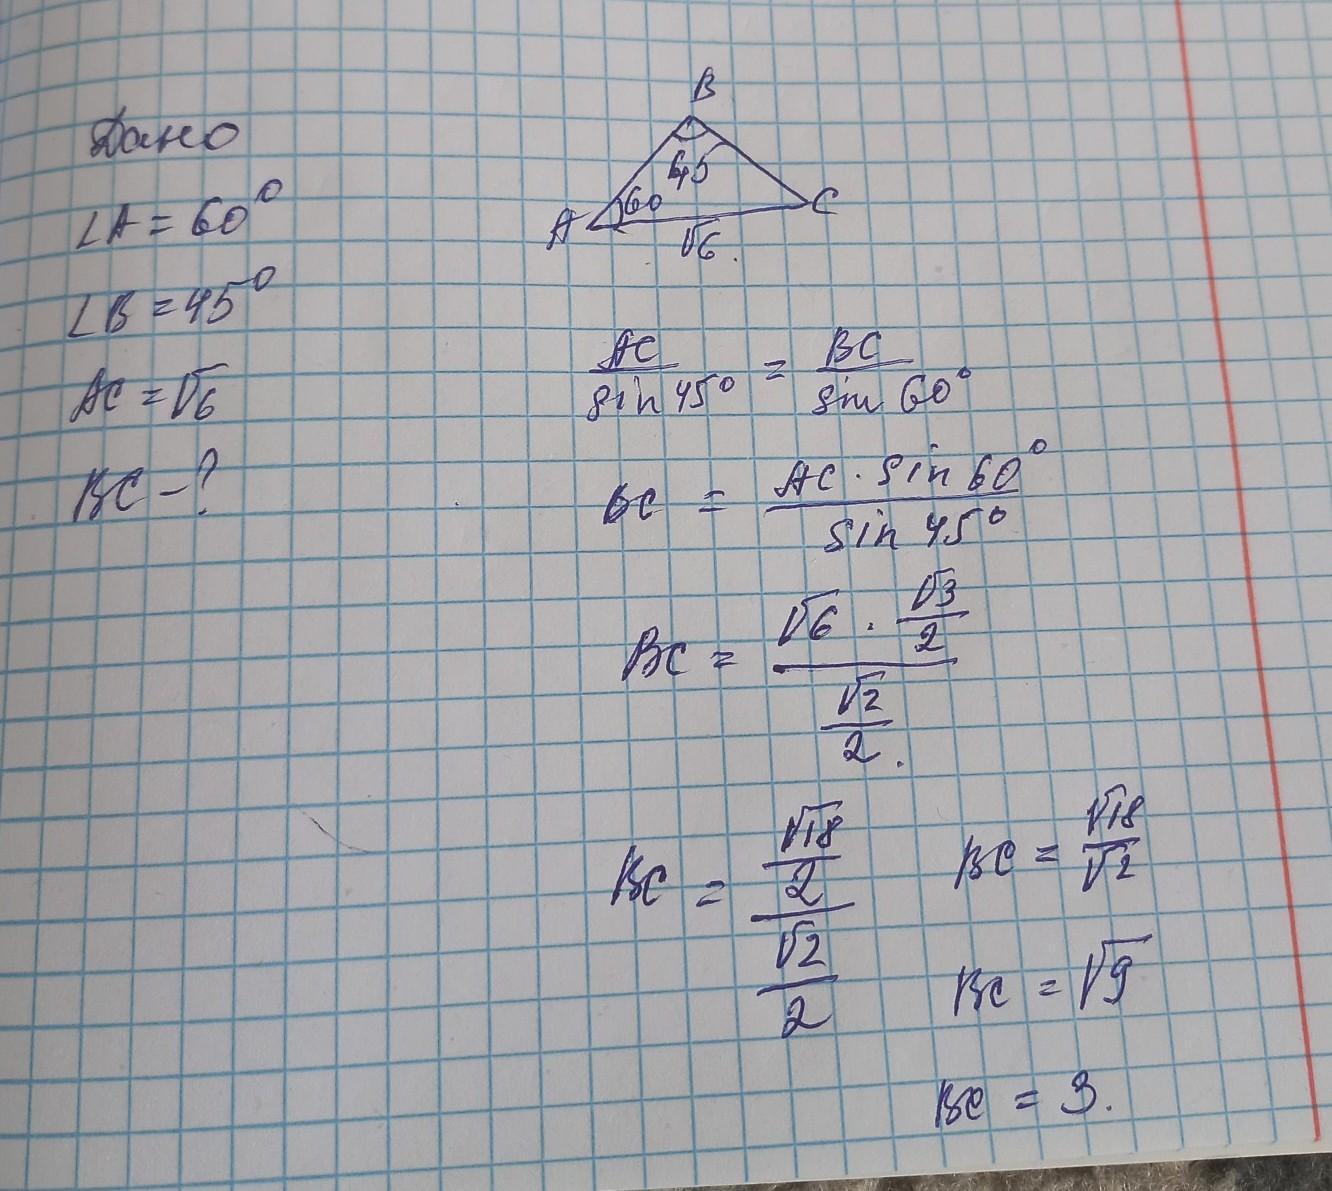 Дано
∠A = 60°
∠B = 45°
AC = √6
BC - ?
B
45
A 60 C
√6.
AC / sin 45° = BC / sin 60°
BC = AC · sin 60° / sin 45°
BC = (√6 · √3/2) / (√2/2).
BC = (√18/2) / (√2/2)
BC = √18 / √2
BC = √9
BC = 3.